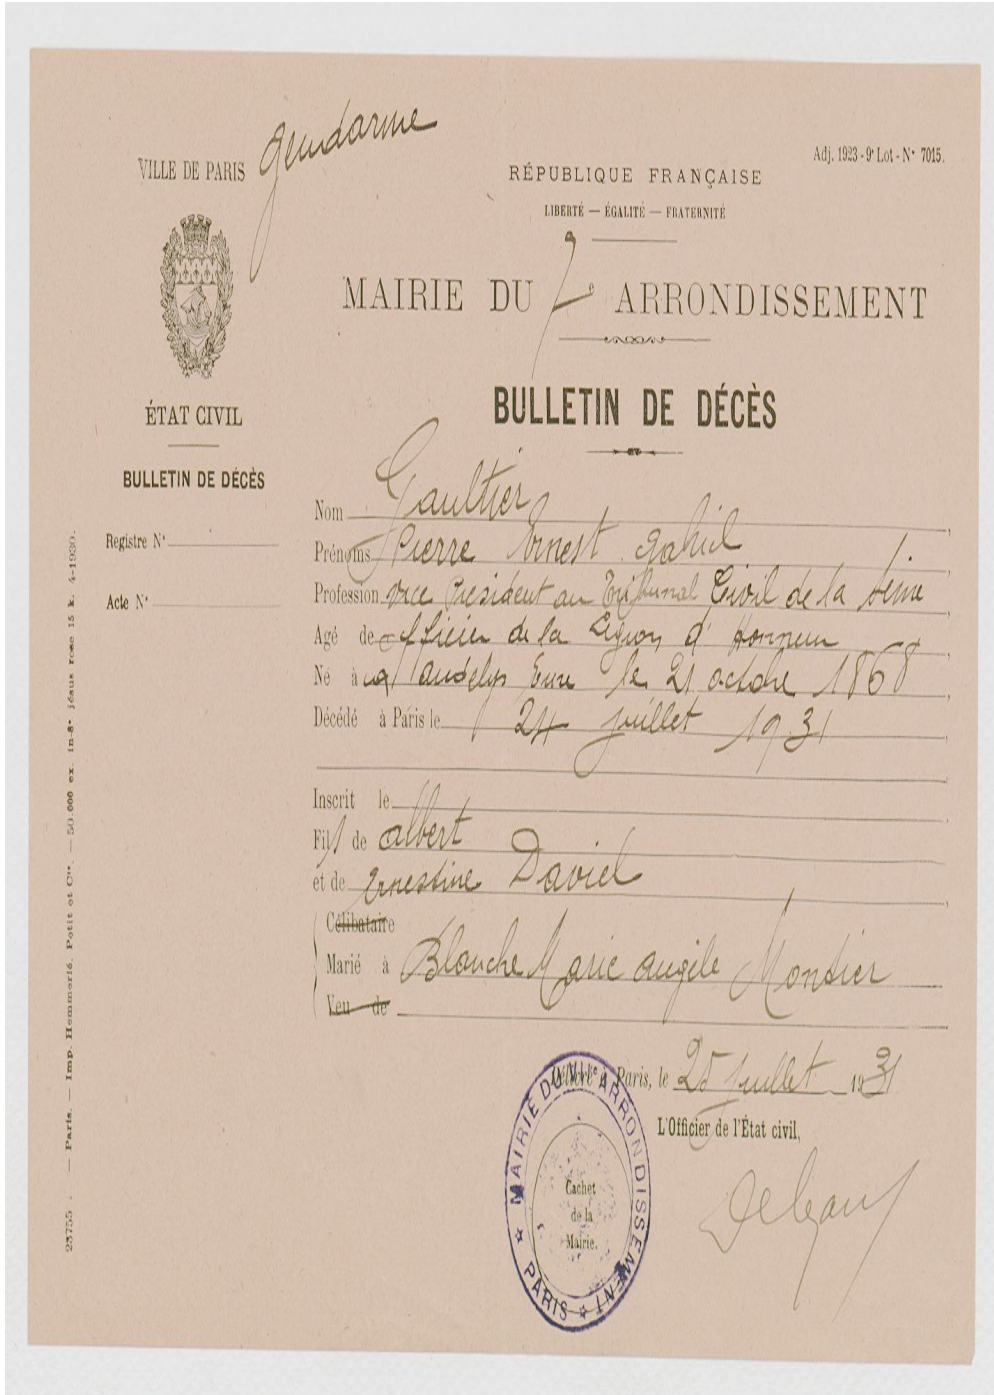 gendarme
VILLE DE PARIS
Adj. 1923 - 9e Lot - No 7015.
RÉPUBLIQUE FRANÇAISE
LIBERTÉ — ÉGALITÉ — FRATERNITÉ
MAIRIE DU 7e ARRONDISSEMENT
ÉTAT CIVIL
BULLETIN DE DÉCÈS
BULLETIN DE DÉCÈS
Registre No
Acte No
Nom Gaultier
Prénoms Pierre Ernest gabriel
Profession vice Président au Tribunal Civil de la Seine
Agé de officier de la Légion d'Honneur
Né à Andelys Eure le 21 octobre 1868
Décédé à Paris le 24 juillet 1931
Inscrit le
Fils de albert
et de Ernestine Daviel
Célibataire
Marié à Blanche Marie angèle Montier
Veu de
Délivré à Paris, le 25 juillet 1931
L'Officier de l'État civil,
MAIRIE DU VIIe ARRONDISSEMENT
PARIS
Cachet
de la
Mairie.
23755. — Paris. — Imp. Hemmerlé, Petit et Cie. — 50.000 ex. in-8° jésus rose 15 k. 4-1930.